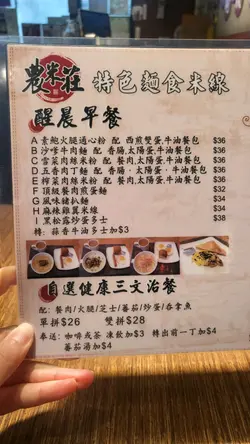 農米莊 特色麵食米線
醒晨早餐
A 素鮑火腿通心粉 配 西煎雙蛋,牛油餐包 $36
B 沙嗲牛肉麵 配 香腸,太陽蛋,牛油餐包 $36
C 雪菜肉絲米粉 配 餐肉,太陽蛋,牛油餐包 $36
D 五香肉丁麵 配 香腸,太陽蛋,牛油餐包 $36
E 榨菜肉絲米粉 配 餐肉,太陽蛋,牛油餐包 $36
F 頂級餐肉煎蛋麵 $32
G 風味豬扒麵 $34
H 麻辣雞翼米線 $34
I 黑松露炒蛋多士 $38
轉: 蒜香牛油多士加$3
自選健康三文治餐
配: 餐肉/火腿/芝士/蕃茄/炒蛋/吞拿魚
單拼$26 雙拼$28
奉送: 咖啡或茶 凍飲加$3 轉出前一丁加$4
蕃茄湯加$4